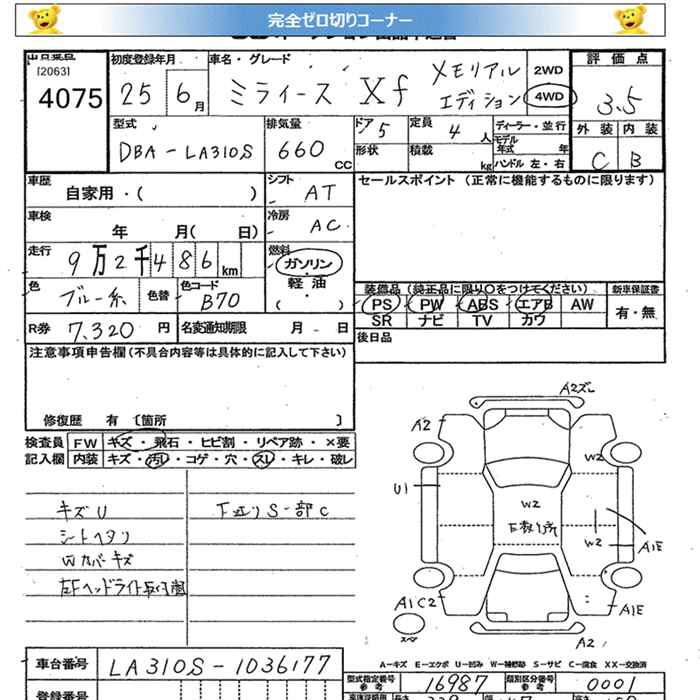 完全ゼロ切りコーナー
出品番号 初度登録年月 車名・グレード 評価点
[2063]
4075 25 6月 ミライース Xf メモリアル エディション 2WD 4WD 3.5
型式 排気量 ドア 5 定員 4人 ディーラー・並行 外装 内装
モデル年式 年
DBA-LA310S 660 CC 形状 積載 kg ハンドル 左・右 C B
車歴 シフト セールスポイント (正常に機能するものに限ります)
自家用・( ) AT
車検 冷房
年 月( 日) AC
走行 燃料
9万2千486 km ガソリン
色 色替 色コード 軽油 装備品 (純正品に限り○をつけてください) 新車保証書
ブルー系 B70 ( ) PS PW ABS エアB AW 有・無
R券 7,320円 名変通知期限 月 日 SR ナビ TV カワ
注意事項申告欄 (不具合内容等は具体的に記入して下さい) 後日品
修復歴 有 〔箇所 〕
検査員 FW キズ・飛石・ヒビ割・リペア跡・×要
記入欄 内装 キズ・汚れ・コゲ・穴・スレ・キレ・破レ
キズU
シートヘタリ
Wカバーキズ
左Fヘッドライト
下廻りS一部C
A2ズレ
A2
W2
U1
W2
W2
A1E
A1C2
A1E
スペア
A2
A-キズ E-エクボ U-凹み W-補修跡 S-サビ C-腐食 XX-交換済
車台番号 LA310S-1036177
型式指定番号 参考 16987 類別区分番号 参考 0001
登録番号